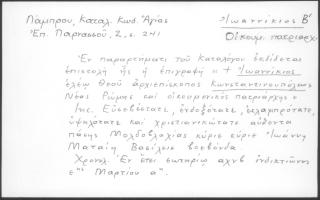 Λάμπρου, Καταλ. Κωδ. Ἁγίας
Ἐπ. Παρνασσοῦ, Σ. ε. 241
Ἰωαννίκιος Β΄
Οἰκουμ. πατριαρχ.
Ἐν παραρτήματι τοῦ Καταλόγου ἐκδίδεται
ἐπιστολὴ ἧς ἡ ἐπιγραφὴ « + Ἰωαννίκιος
ἐλέῳ Θεοῦ ἀρχιεπίσκοπος Κωνσταντινουπόλεως
Νέας Ῥώμης καὶ οἰκουμενικὸς πατριάρχης +
Ἰησ. Εὐσεβέστατε, ἐνδοξότατε, ἐκλαμπρότατε,
ὑψηλότατε καὶ χριστιανικώτατε αὐθέντα
πάσης Μολδοβλαχίας κύριε κύριε Ἰωάννη
Ματαίη Βασίλειε βοεβόνδα.
Χρονολ. Ἐν ἔτει σωτηρίῳ αχνβ ἰνδικτιῶνος
ε΄ης Μαρτίου α΄».